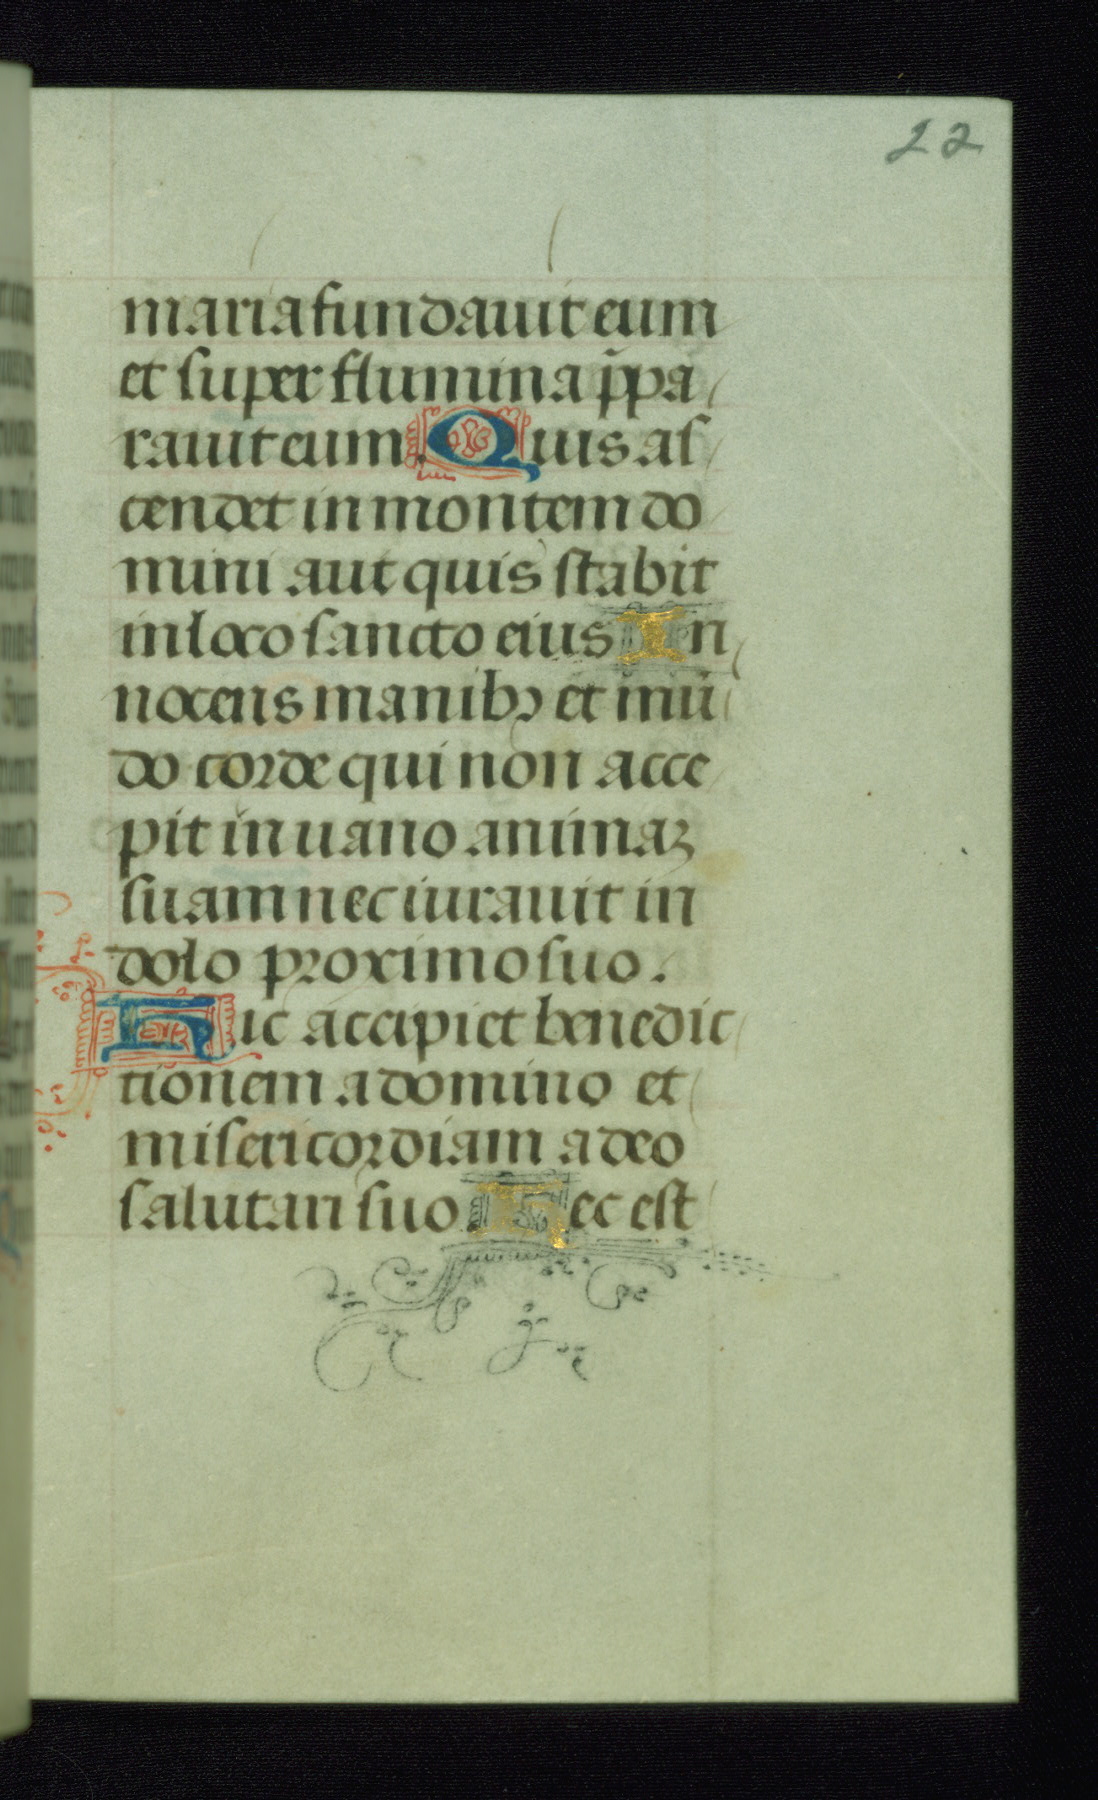 22
maria fundauit eum
et super flumina p̄pa
rauit eum Quis as
cendet in montem do
mini aut quis stabit
in loco sancto eius In
nocens manibꝫ et mū
do corde qui non acce
pit in uano animaꝫ
suam nec iurauit in
dolo proximo suo.
Hic accipiet benedic
tionem a domino et
misericordiam a deo
salutari suo Hec est